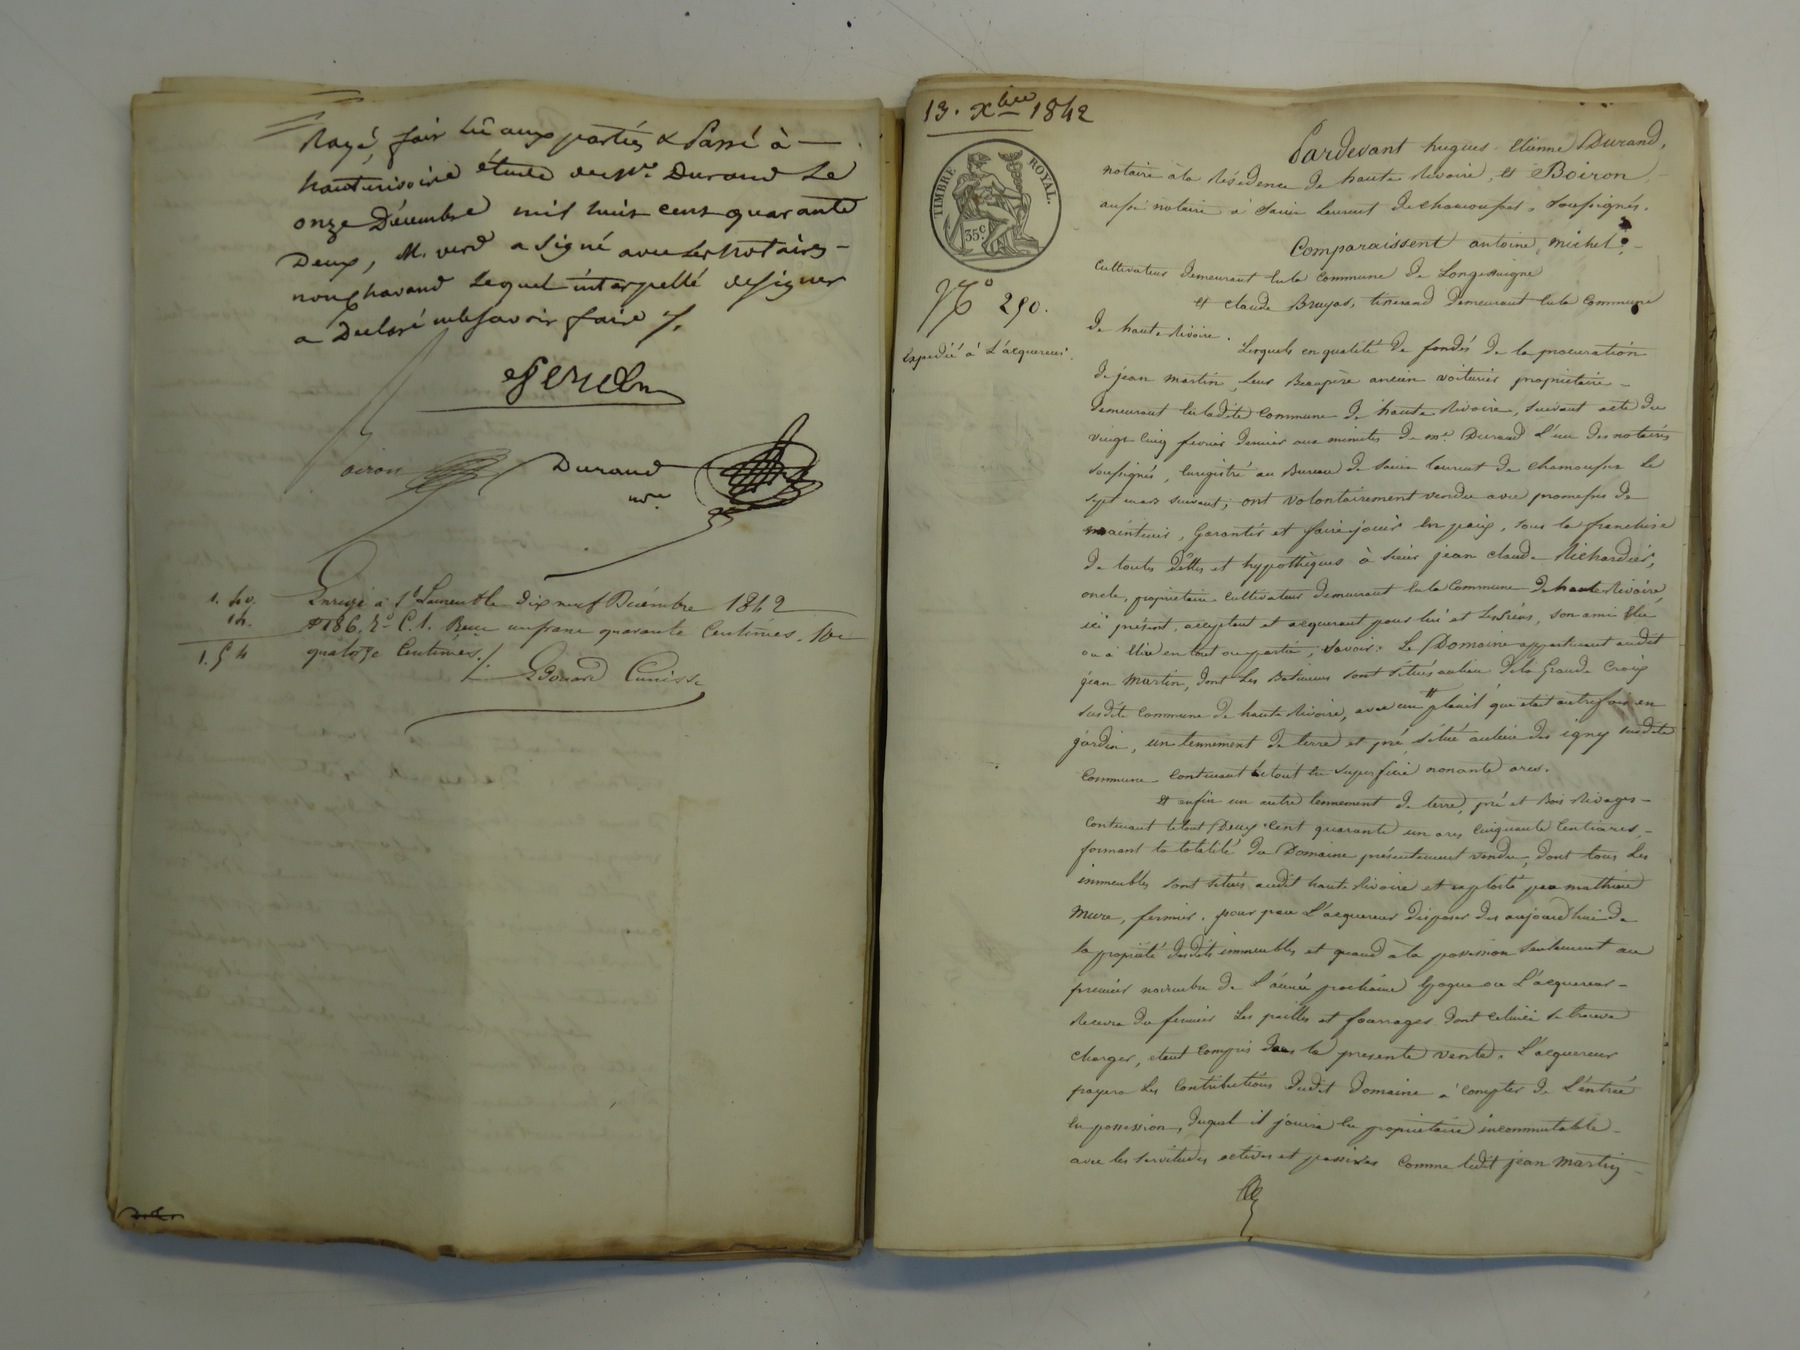 Rayé, fait lû aux parties & Passé à —
hauterivoire étude de Me. Durand Le
onze Décembre mil huit cent quarante
Deux, M. verd a signé avec Les Notaires —
non chavand Lequel interpellé de signer
a Declaré ne le savoir faire /.
Durand
nre.
1. 40.
14.
1. 54
Enregé à St Laurent le dix neuf Décembre 1842
fo 186. Ro C. 1. Reçu un franc quarante centimes. 10e
quatorze Centimes ./.
Edouard Cunisse
13. Xbre 1842
TIMBRE ROYAL.
35c.
No 290.
Expedié à L'acquereur.
Pardevant hugues Etienne Durand,
notaire à la Résidence de haute Rivoire, et Boiron
aussi notaire à Saint Laurent de chamousset, soussignés.
Comparaissent antoine michel
Cultivateur demeurant en la commune de Longessaigne
et claude Bruyas, tisserand demeurant en la commune
de haute Rivoire.
Lesquels en qualité de fondés de la procuration
de jean martin, leur Beaupère ancien voiturier propriétaire —
demeurant en ladite commune de haute Rivoire, suivant acte du
vingt cinq fevrier dernier aux minutes de me. Durand L'un des notaires
soussignés, Enregistré au Bureau de Saint Laurent de chamousset le
sept mars suivant; ont volontairement vendu avec promesses de
maintenir, Garantir et faire jouir en paix, sous la franchise
de toutes dettes et hypothèques à sieur jean claude Richardier,
oncle, propriétaire cultivateur demeurant en la Commune de haute Rivoire,
ici présent, acceptant et acquerant pour lui et les siens, son ami Elu
ou à Elire en tout ou partie, savoir: Le Domaine appartenant audit
jean Martin, dont Les Batiments sont situés au lieu de la Grande Croix
susdite Commune de haute Rivoire, avec un plait qui etait autrefois en
jardin, un tennement de terre et pré, situé au lieu des igny susdite
commune contenant le tout en superficie nonante ares.
Et enfin un autre tennement de terre, pré et Bois Rivages —
contenant le tout Deux cent quarante un ares cinquante centiares, —
formant la totalité du Domaine présentement vendu, dont tous Les
immeubles sont situés audit haute Rivoire et exploité par mathieu
Mure, fermier. pour par L'acquereur disposer dès aujourd'hui de
la propriété desdits immeubles et quand à la possession seulement au
premier novembre de L'année prochaine Epoque ou L'acquereur —
Recevra du fermier Les pailles et fourrages dont celui-ci se trouve
charger, etant compris dans la presente vente. L'acquereur
payera Les contributions dudit Domaine à compter de L'entrée
en possession, duquel il jouira en propriétaire incommutable —
avec les servitudes actives et passives comme ledit jean Martin —